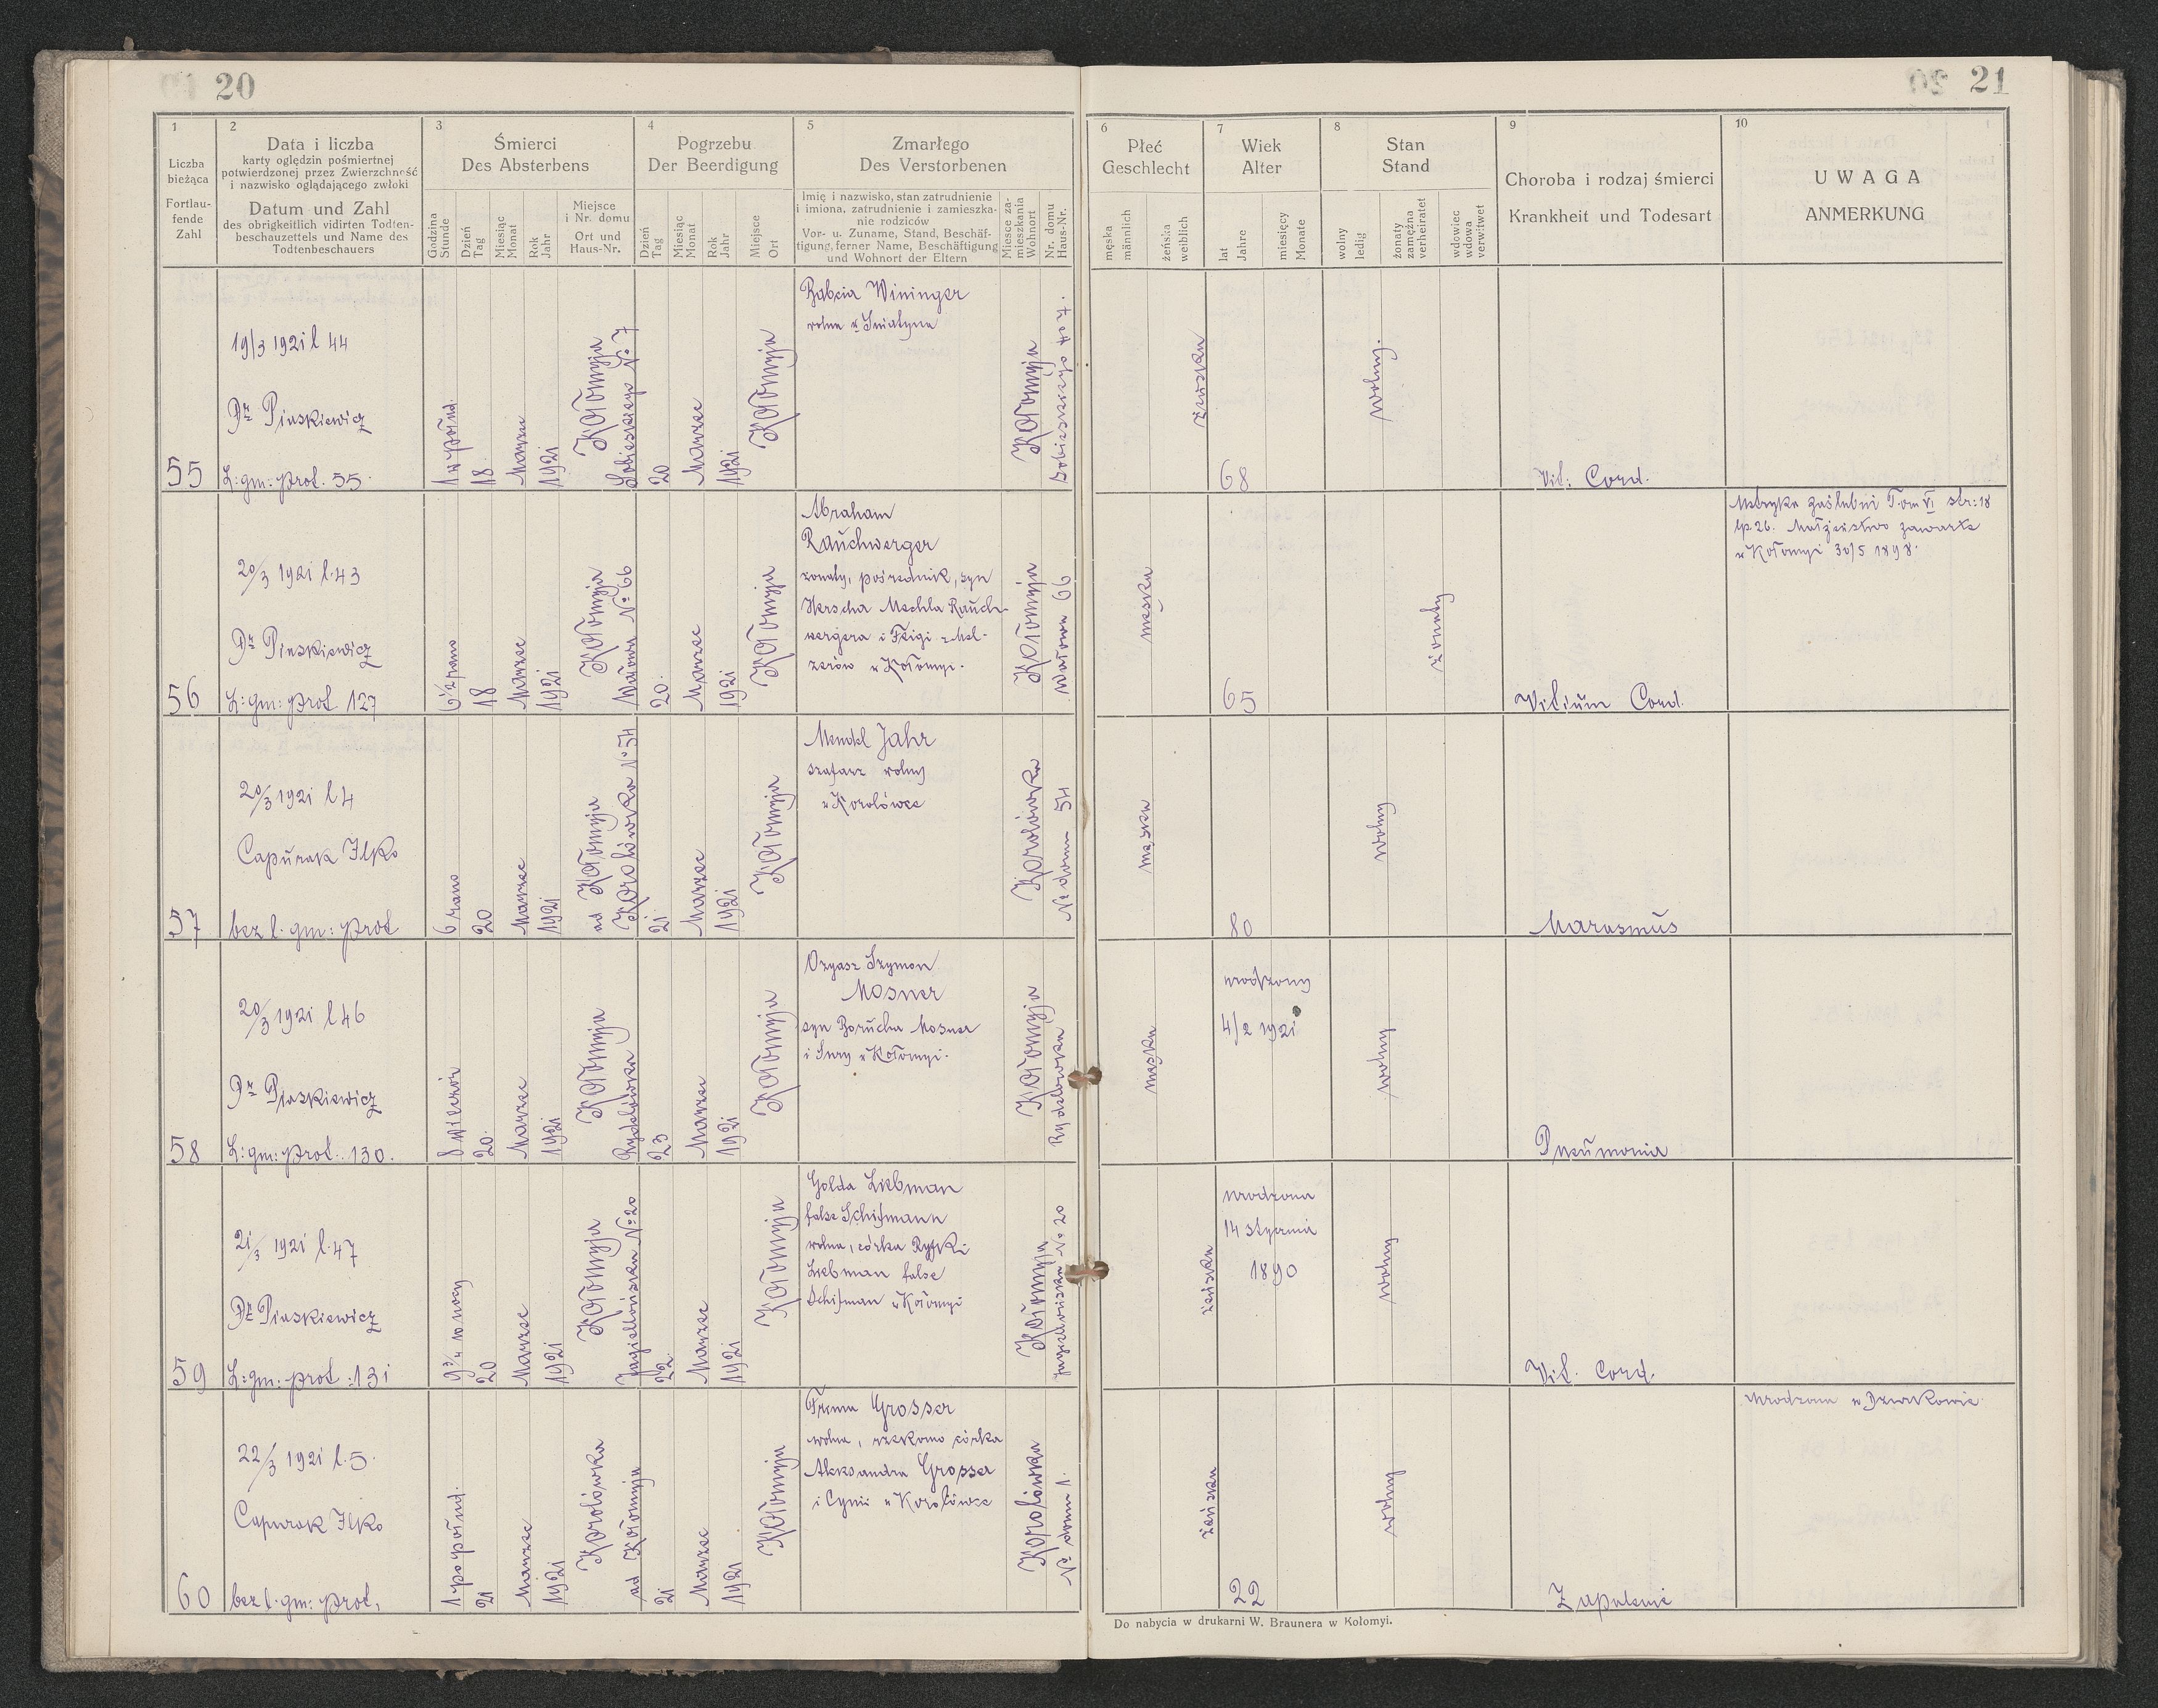 20
21
1
Liczba
bieżąca
Fortlau-
fende
Zahl
2
Data i liczba
karty oględzin pośmiertnej
potwierdzonej przez Zwierzchność
i nazwisko oglądającego zwłoki
Datum und Zahl
des obrigkeitlich vidirten Todten-
beschauzettels und Name des
Todtenbeschauers
3
Śmierci
Des Absterbens
Godzina
Stunde
Dzień
Tag
Miesiąc
Monat
Rok
Jahr
Miejsce
i Nr. domu
Ort und
Haus-Nr.
4
Pogrzebu
Der Beerdigung
Dzień
Tag
Miesiąc
Monat
Rok
Jahr
Miejsce
Ort
5
Zmarłego
Des Verstorbenen
Imię i nazwisko, stan zatrudnienie
i imiona, zatrudnienie i zamieszka-
nie rodziców
Vor- u. Zuname, Stand, Beschäf-
tigung, ferner Name, Beschäftigung
und Wohnort der Eltern
Miesce za-
mieszkania
Wohnort
Nr. domu
Haus-Nr.
6
Płeć
Geschlecht
męska
männlich
żeńska
weiblich
7
Wiek
Alter
lat
Jahre
miesięcy
Monate
8
Stan
Stand
wolny
ledig
żonaty
zamężna
verheiratet
wdowiec
wdowa
verwitwet
9
Choroba i rodzaj śmierci
Krankheit und Todesart
10
UWAGA
ANMERKUNG
55
19/3 1921 l 44
Dr Piaskiewicz
L: gm: prot. 55.
1 w połud.
18
Marzec
1921
Kołomyja
Sobieskiego No 7
20
Marzec
1921
Kołomyja
Babcia Wininger
wolna z Śniatyna
Kołomyja
Sobieskiego No 7.
żeńska
68
wolny.
Vit: Cord.
56
20/3 1921 l. 43
Dr Piaskiewicz
L: gm: prot 127
6 1/2 rano
18
Marzec
1921
Kołomyja
Wałowa No 66
20.
Marzec
1921
Kołomyja
Abraham
Rauchwerger
żonaty, pośrednik, syn
Herscha Mechla Rauch-
wergera i Feigi z Mel-
zerów w Kołomyi.
Kołomyja
Wałowa 66
męska
65
żonaty
Vitium Cord.
Metryka zaślubni Tom VI str: 18
lp. 26. Małżeństwo zawarte
w Kołomyi 30/5 1898.
57
20/3 1921 l 4
Capurak Ilko
bez l. gm: prot
6 rano
20
Marzec
1921
ad Kołomyja
Korolówka No 54
21
Marzec
1921
Kołomyja
Mendel Jahr
szafarz wolny
w Korolówce
Korolówka
No domu 54
męska
80
wolny
Marasmus
58
20/3 1921 l 46
Dr Piaskiewicz
L: gm: prot. 130.
8 wieczór
20.
Marzec
1921
Kołomyja
Rydelówka
23
Marzec
1921
Kołomyja
Ozyasz Szymon
Mosner
syn Borucha Mosner
i Sury w Kołomyi.
Kołomyja
Rydelówka
męska
urodzony
4/2 1921
wolny
Pneumonia
59
21/3 1921 l. 47
Dr Piaskiewicz
L: gm: prot: 131
9 3/4 w nocy
20
Marzec
1921
Kołomyja
Jagiellońska No 20
22.
Marzec
1921
Kołomyja
Golda Liebman
false Schifmann
wolna, córka Ryfki
Liebman false
Schifman w Kołomyi
Kołomyja
Jagiellońska No 20
żeńska
urodzona
14 stycznia
1890
wolny
Vit. Cord.
60
22/3 1921 l. 5.
Capurak Ilko
bez l. gm: prot.
1 po połud.
21
Marzec
1921
Korolówka
ad Kołomyja
21
Marzec
1921
Kołomyja
Grosser
wolna, rzekomo córka
Aleksandra Grosser
i Cyni w Korolówce
Korolówka
No domu 1.
żeńska
22
wolny
Zapalenie
urodzona w Dzurkowie
Do nabycia w drukarni W. Braunera w Kołomyi.